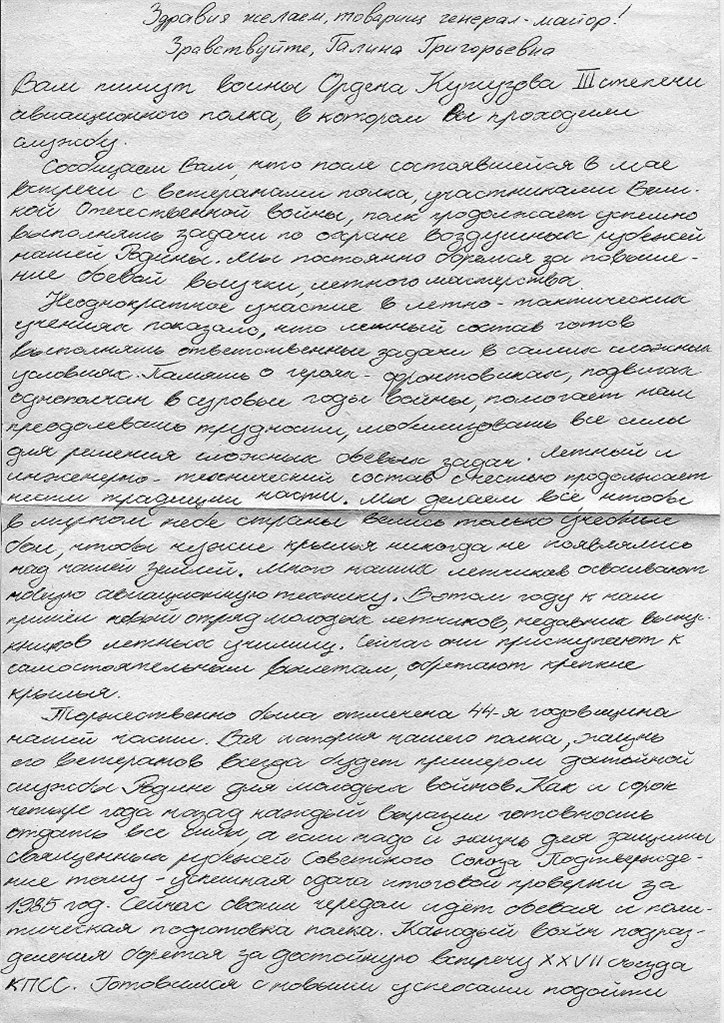 Здравия желаем, товарищ генерал-майор!
Зравствуйте, Галина Григорьевна
Вам пишут воины Ордена Кутузова III степени
авиационного полка, в котором Вы проходили
службу.
Сообщаем Вам, что после состоявшейся в мае
встречи с ветеранами полка, участниками Вели-
кой Отечественной войны, полк продолжает успешно
выполнять задачи по охране воздушных рубежей
нашей Родины. Мы постоянно боремся за повыше-
ние боевой выучки, летного мастерства.
Неоднократное участие в летно-тактических
учениях показало, что летный состав готов
выполнять ответственные задачи в самых сложных
условиях. Память о героях-фронтовиках, подвигах
однополчан в суровые годы войны, помогает нам
преодолевать трудности, мобилизовать все силы
для решения сложных боевых задач. Летный и
инженерно-технический состав с честью продолжает
нести традиции части. Мы делаем все чтобы
в мирном небе страны велись только учебные
бои, чтобы чужие крылья никогда не появлялись
над нашей землей. Много наших летчиков осваивают
новую авиационную технику. В этом году к нам
пришел новый отряд молодых летчиков, недавних выпу-
скников летных училищ. Сейчас они приступают к
самостоятельным вылетам, обретают крепкие
крылья.
Торжественно была отмечена 44-я годовщина
нашей части. Вся история нашего полка, жизнь
его ветеранов всегда будет примером достойной
службы Родине для молодых воинов. Как и сорок
четыре года назад каждый выразил готовность
отдать все силы, а если надо и жизнь для защиты
священных рубежей Советского Союза. Подтвержде-
ние тому - успешная сдача итоговой проверки за
1985 год. Сейчас своим чередом идет боевая и поли-
тическая подготовка полка. Каждый воин подраз-
деления борется за достойную встречу XXVII съезда
КПСС. Готовимся с новыми успехами подойти